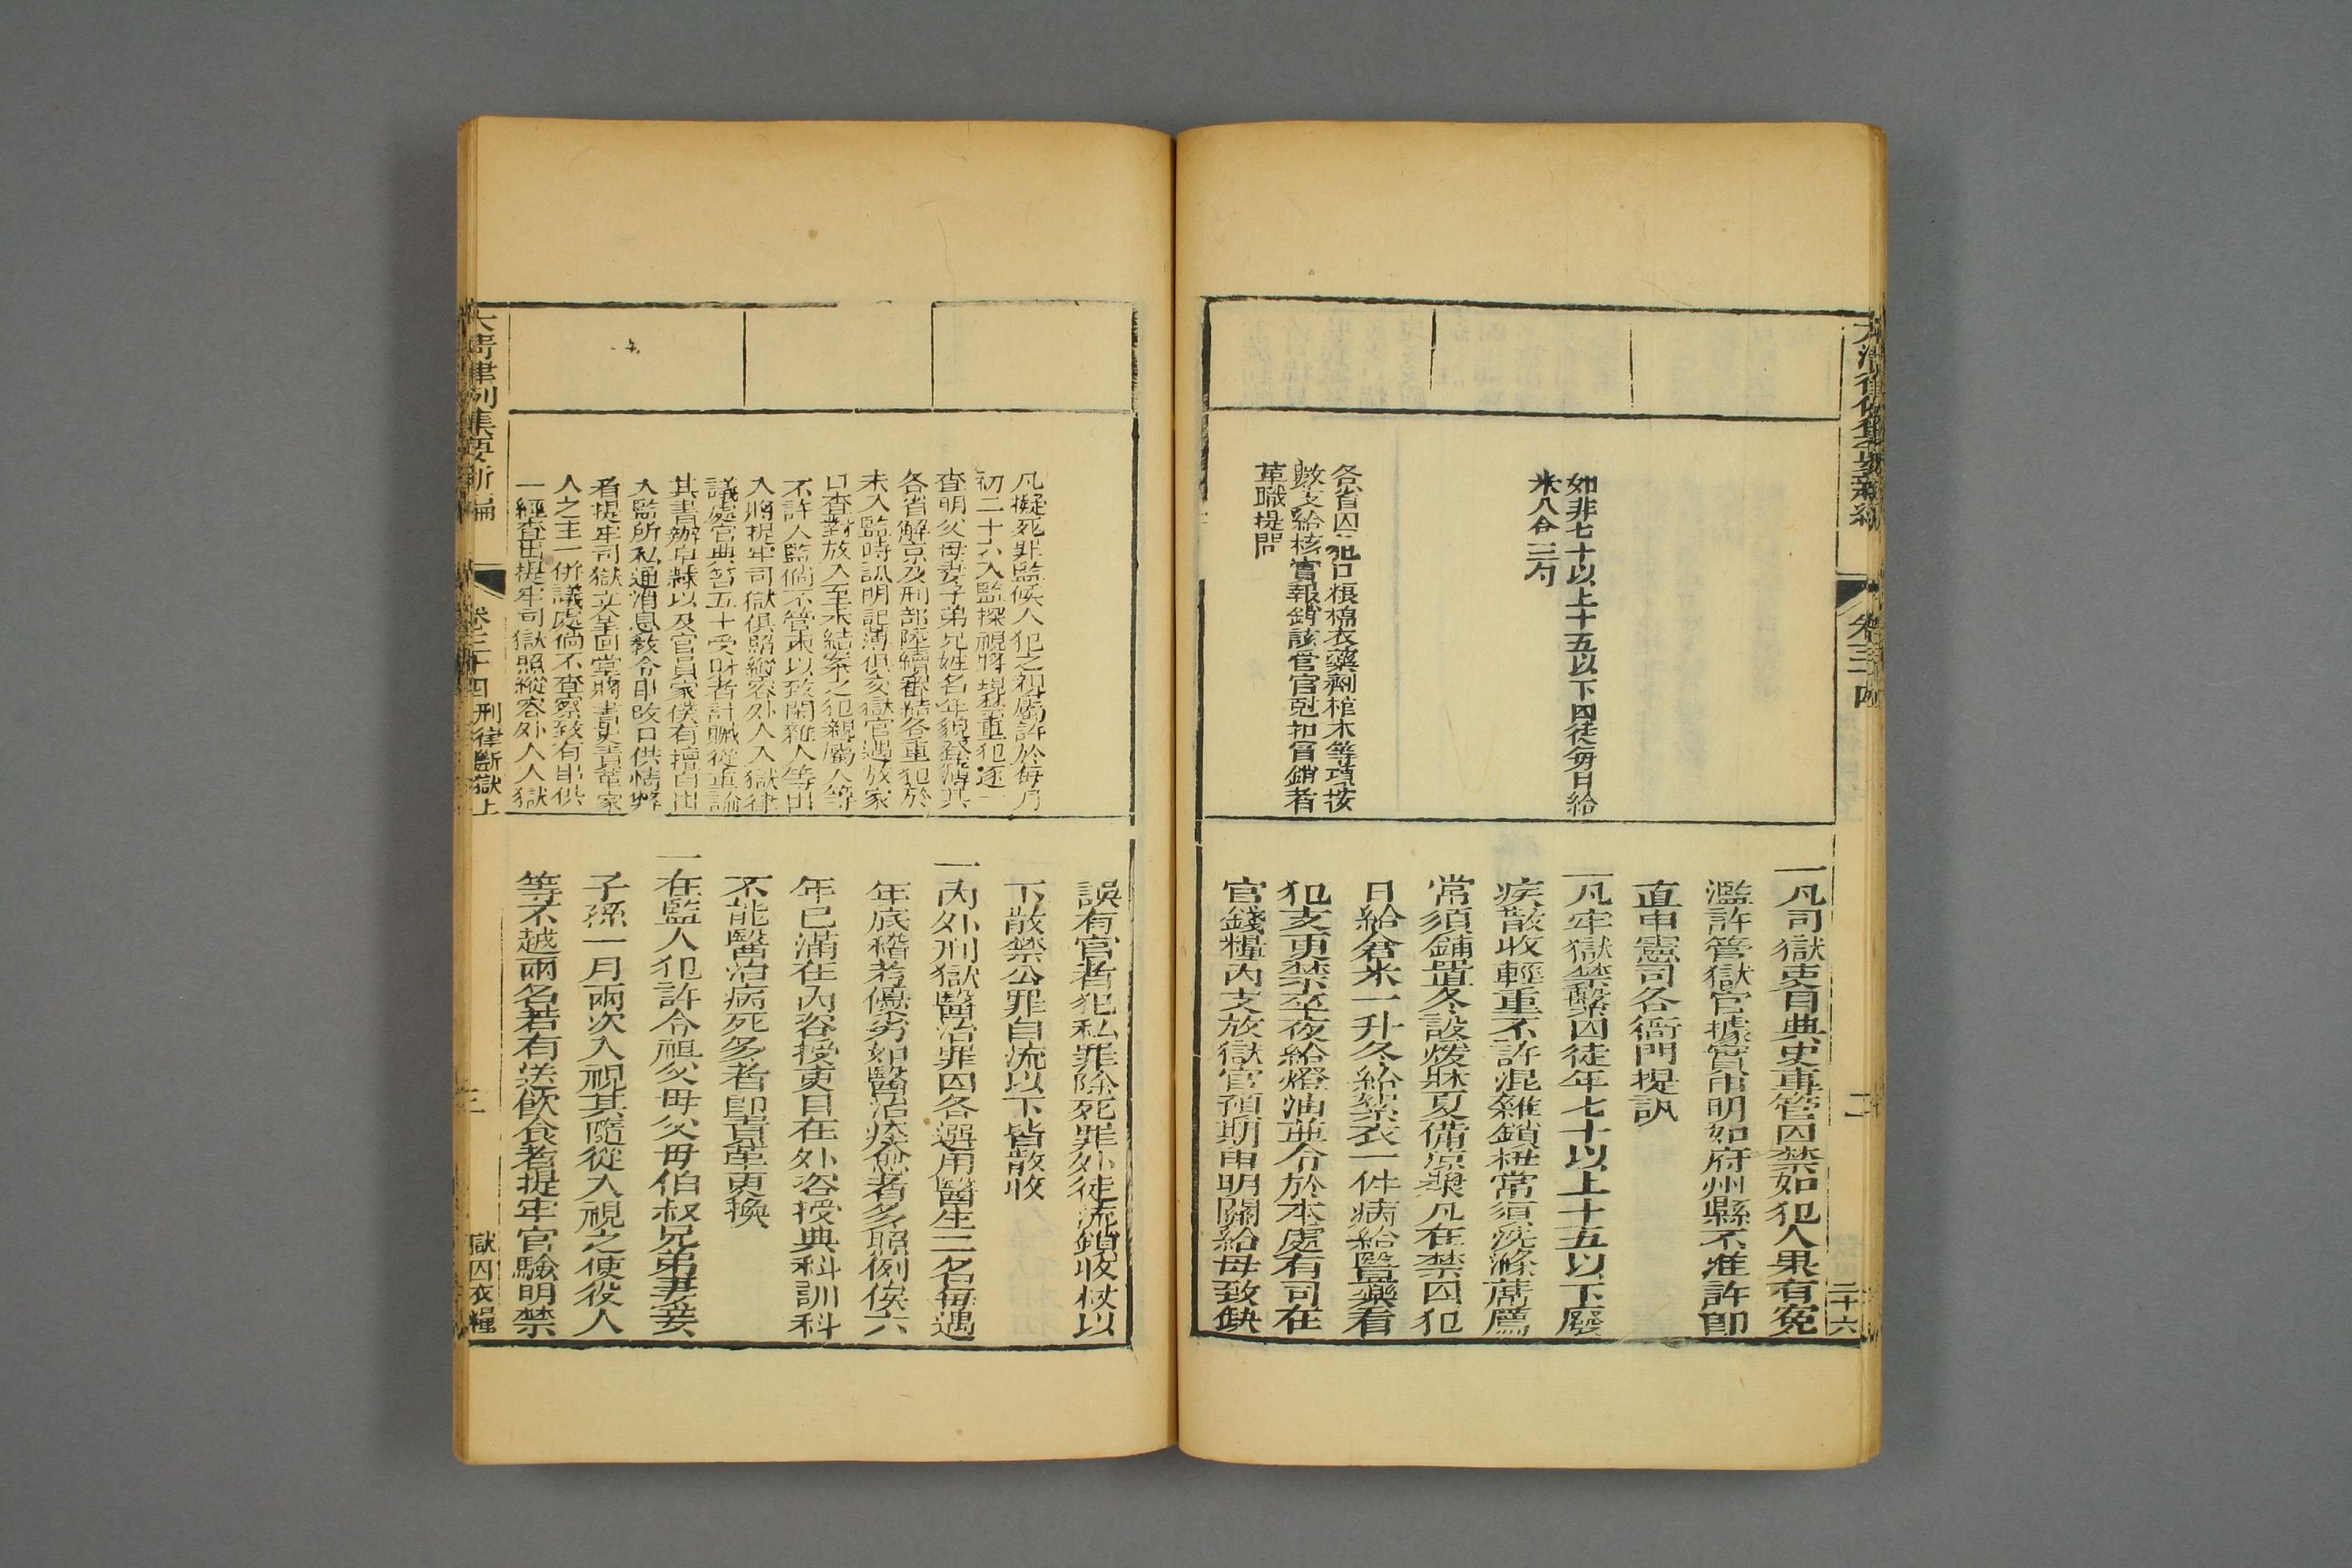 大清律例集要新編
卷三十四
二
二十六
如非七十以上十五以下囚徒每日給
米八合三勺
各省囚犯口粮棉衣藥劑棺木等項按
數支給核實報銷該管官尅扣冒銷者
革職提問
一凡司獄吏目典史專管囚禁如犯人果有冤
濫許管獄官據實申明如府州縣不准許卽
直申憲司各衙門提訊
一凡牢獄禁繫囚徒年七十以上十五以下廢
疾散收輕重不許混雜鎖杻常須洗滌蓆薦
常須鋪置冬設煖牀夏備凉漿凡在禁囚犯
日給倉米一升冬給絮衣一件病給醫藥看
犯支更禁卒夜給燈油並令於本處有司在
官錢糧內支放獄官預期申明關給毋致缺
凡擬死罪監候人犯之祖屬許於每月
初二十六入監探視將現禁重犯逐一
查明父母妻子弟兄姓名年貌登簿其
各省解京及刑部陸續審結各重犯於
未入監時訊明記簿俱交獄官遇放家
口查對放入至未結案之犯親屬人等
不許入監倘不管束以致閒雜人等出
入將提牢司獄俱照縱容外人入獄律
議處官典笞五十受財者計贓從重論
其書辦皁隸以及官員家僕有擅自出
入監所私通消息教令串改口供情弊
者提牢司獄立拿回堂將書吏責革家
人之主一併議處倘不查察致有串供
一經查出提牢司獄照縱容外人入獄
誤有官者犯私罪除死罪外徒流鎖收杖以
下散禁公罪自流以下皆散收
一內外刑獄醫治罪囚各選用醫生二名每遇
年底稽考優劣如醫治痊愈者多照例俟六
年已滿在內咨授吏目在外咨授典科訓科
不能醫治病死多者卽責革更換
一在監人犯許令祖父母父母伯叔兄弟妻妾
子孫一月兩次入視其隨從入視之使役人
等不越兩名若有送飲食者提牢官驗明禁
大清律例集要新編
卷三十四 刑律斷獄上
三
獄囚衣糧